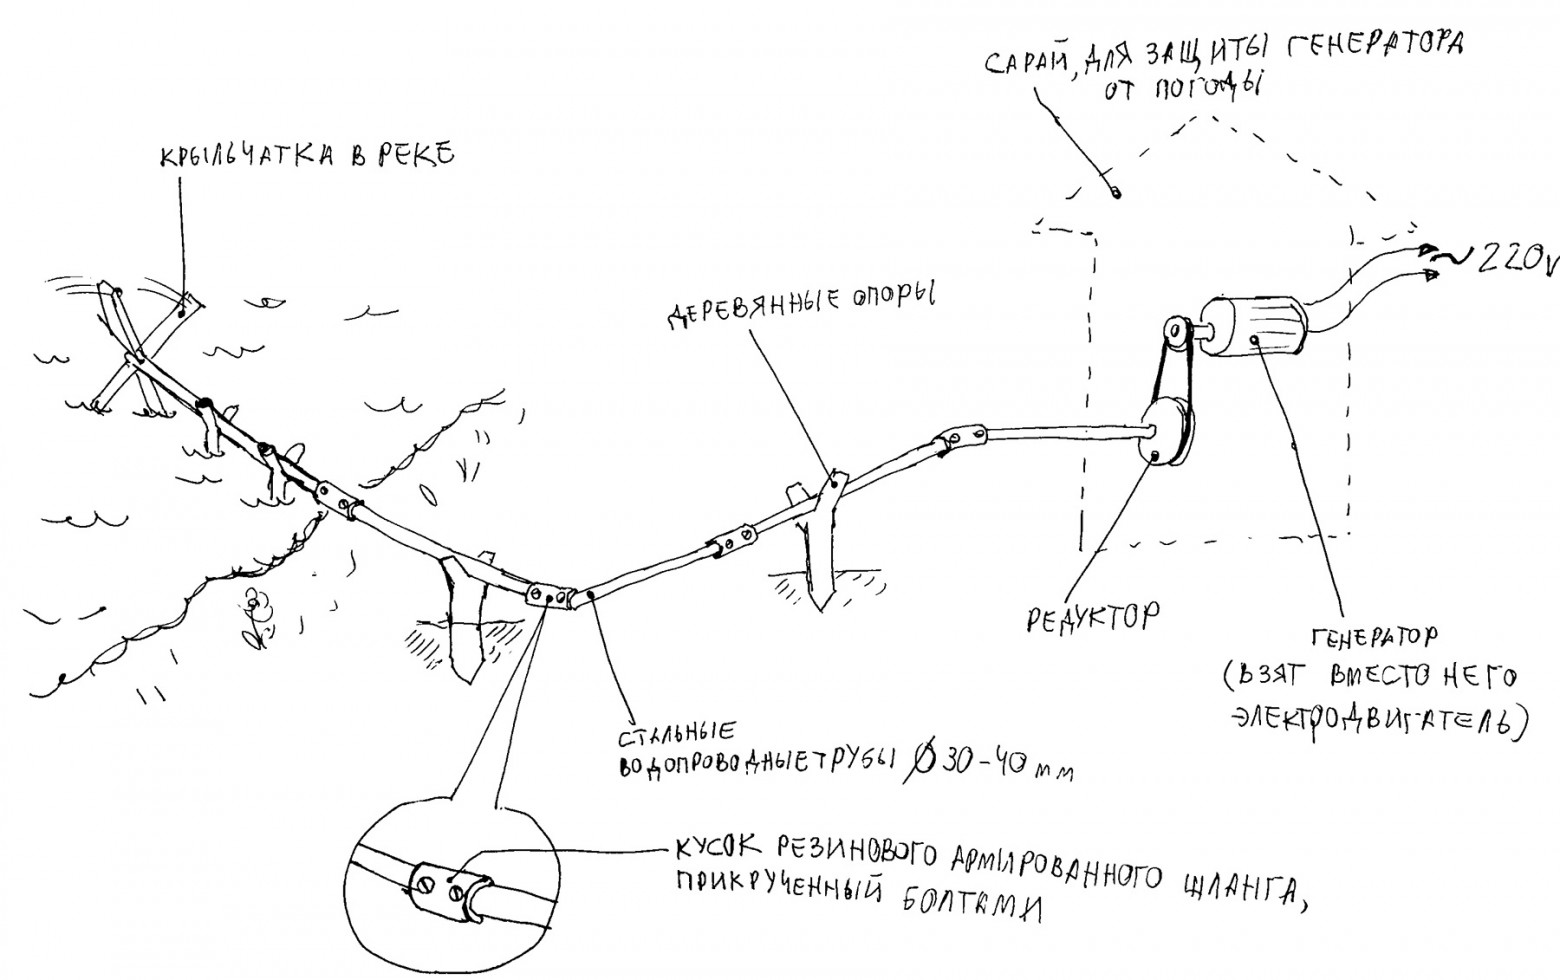 САРАЙ, ДЛЯ ЗАЩИТЫ ГЕНЕРАТОРА
ОТ ПОГОДЫ
КРЫЛЬЧАТКА В РЕКЕ
~220V
ДЕРЕВЯННЫЕ ОПОРЫ
РЕДУКТОР
ГЕНЕРАТОР
(ВЗЯТ ВМЕСТО НЕГО
ЭЛЕКТРОДВИГАТЕЛЬ)
СТАЛЬНЫЕ
ВОДОПРОВОДНЫЕ ТРУБЫ Ø 30-40 мм
КУСОК РЕЗИНОВОГО АРМИРОВАННОГО ШЛАНГА,
ПРИКРУЧЕННЫЙ БОЛТАМИ